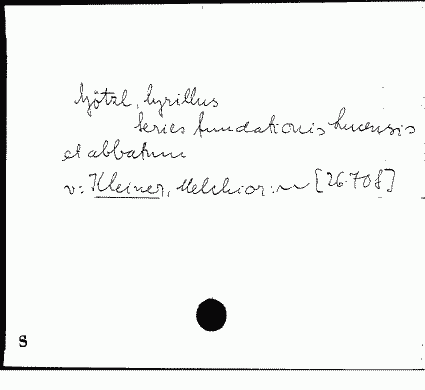 Götzl, Cyrillus
Series fundationis Lucensis
et abbatum
v: Kleiner, Melchior: ~ [26.708]
S